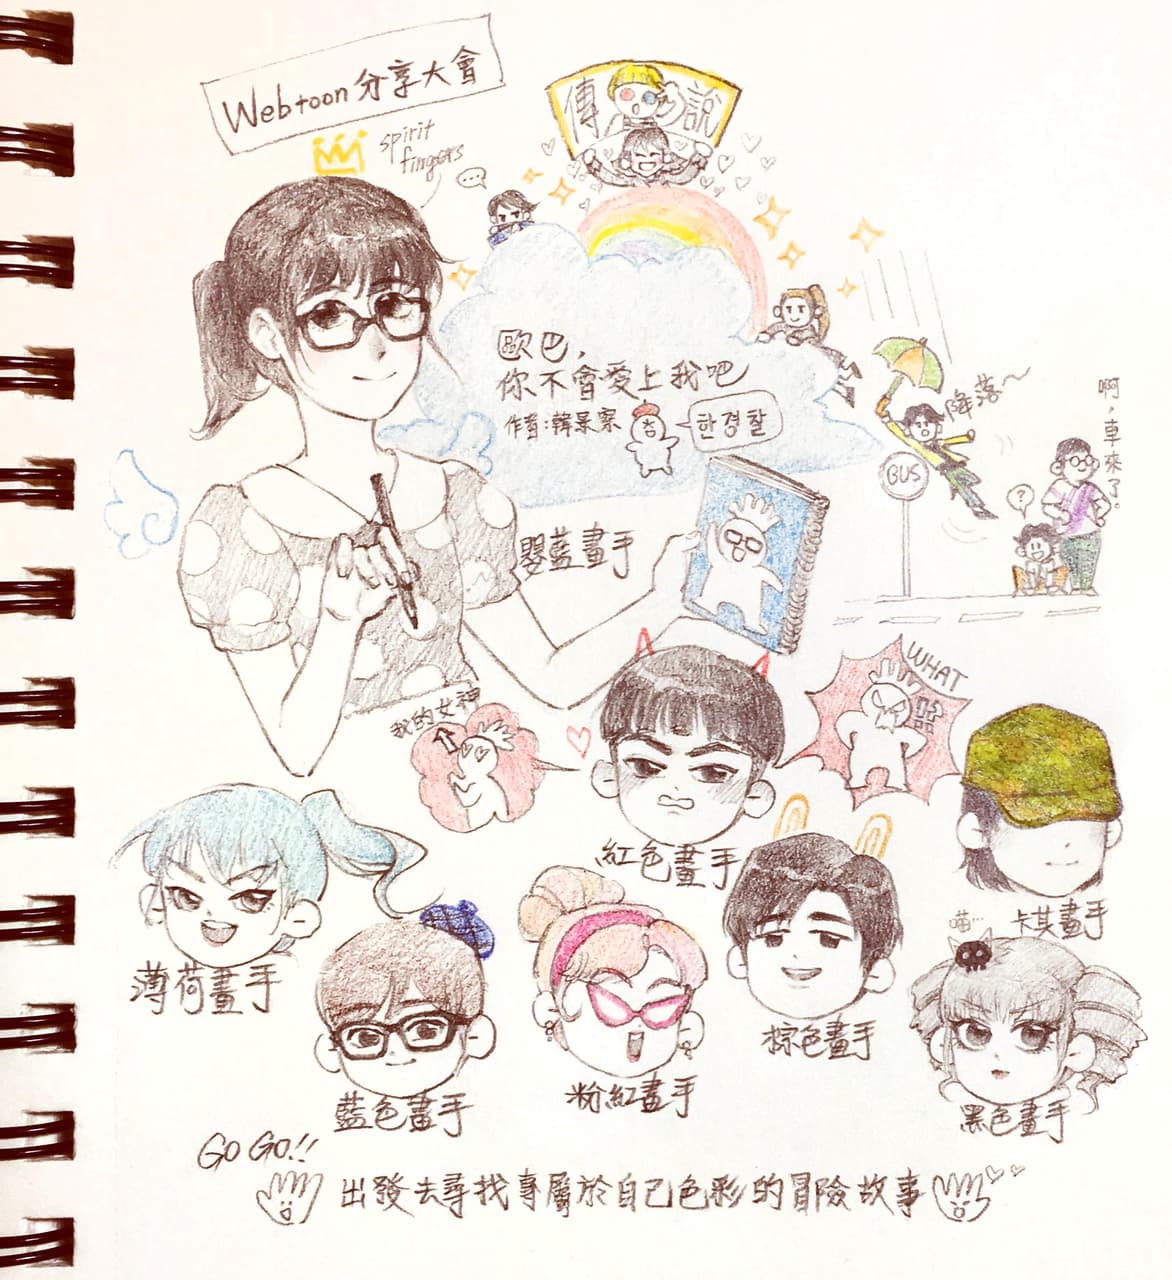 Webtoon 分享大會
spirit
fingers
傳說
歐巴，
你不會愛上我吧
作者：韓景察
한경찰
嬰藍畫手
BUS
降落～
啊，車來了。
?
WHAT
我的女神
紅色畫手
卡其畫手
薄荷畫手
喵…
藍色畫手
粉紅畫手
棕色畫手
黑色畫手
GO GO!!
出發去尋找專屬於自己色彩的冒險故事